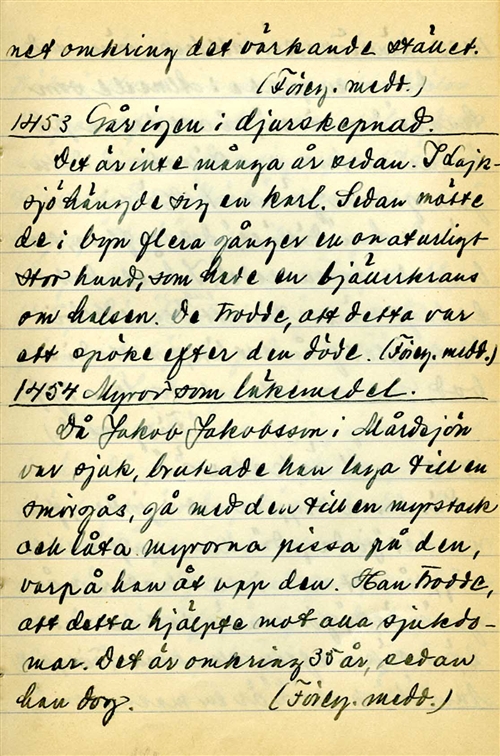 net omkring det värkande stället.
(Föreg. medd.)
1453 Går igen i djurskepnad.
Det är inte många år sedan. I Lajk-
sjö hängde sig en karl. Sedan mötte
de i byn flera gånger en onaturligt
stor hund, som hade en bjällerkrans
om halsen. De trodde, att detta var
ett spöke efter den döde. (Föreg. medd.)
1454 Myror som läkemedel.
Då Jakob Jakobsson i Mårdsjön
var sjuk, brukade han laga till en
smörgås, gå med den till en myrstack
och låta myrorna pissa på den,
varpå han åt upp den. Han trodde,
att detta hjälpte mot alla sjukdo-
mar. Det är omkring 35 år, sedan
han dog. (Föreg. medd.)